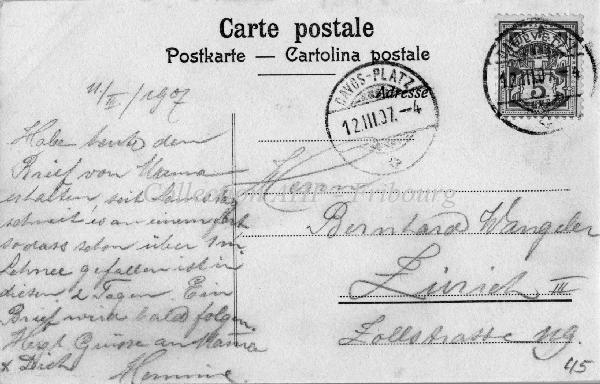 Carte postale
Postkarte — Cartolina postale
Adresse
DAVOS-PLATZ
12.III.07.–4
12.III.07.–4
5
11/III/1907
Habe heute den
Brief von Mama
erhalten, seit
schneit es an einem fort
sodass schon über 1 m.
Schnee gefallen ist in
diesen 2 Tagen. Ein
Brief wird bald folgen.
Herzl Grüsse an Mama
& Dich
Herrn
Bernhard Wangeler
Zürich III
Zollstrasse 119.
45
Fribourg